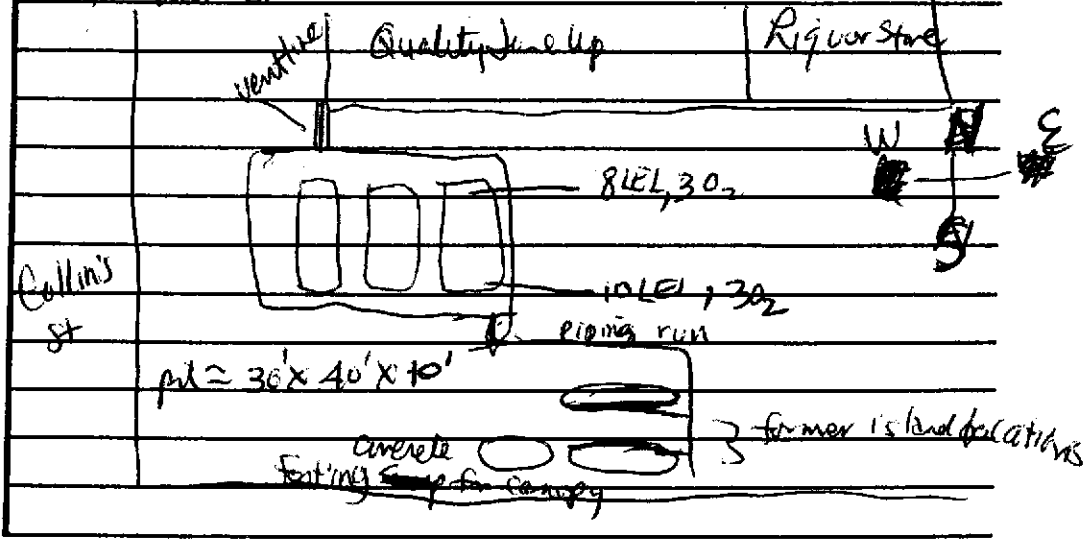 Quality Tune Up
Liquor Store
ventline
W N E
S
8 LEL, 3 O₂
10 LEL, 3 O₂
Collin's
St
piping run
pit ≃ 30' X 40' X 10'
former island locations
concrete
footing for canopy